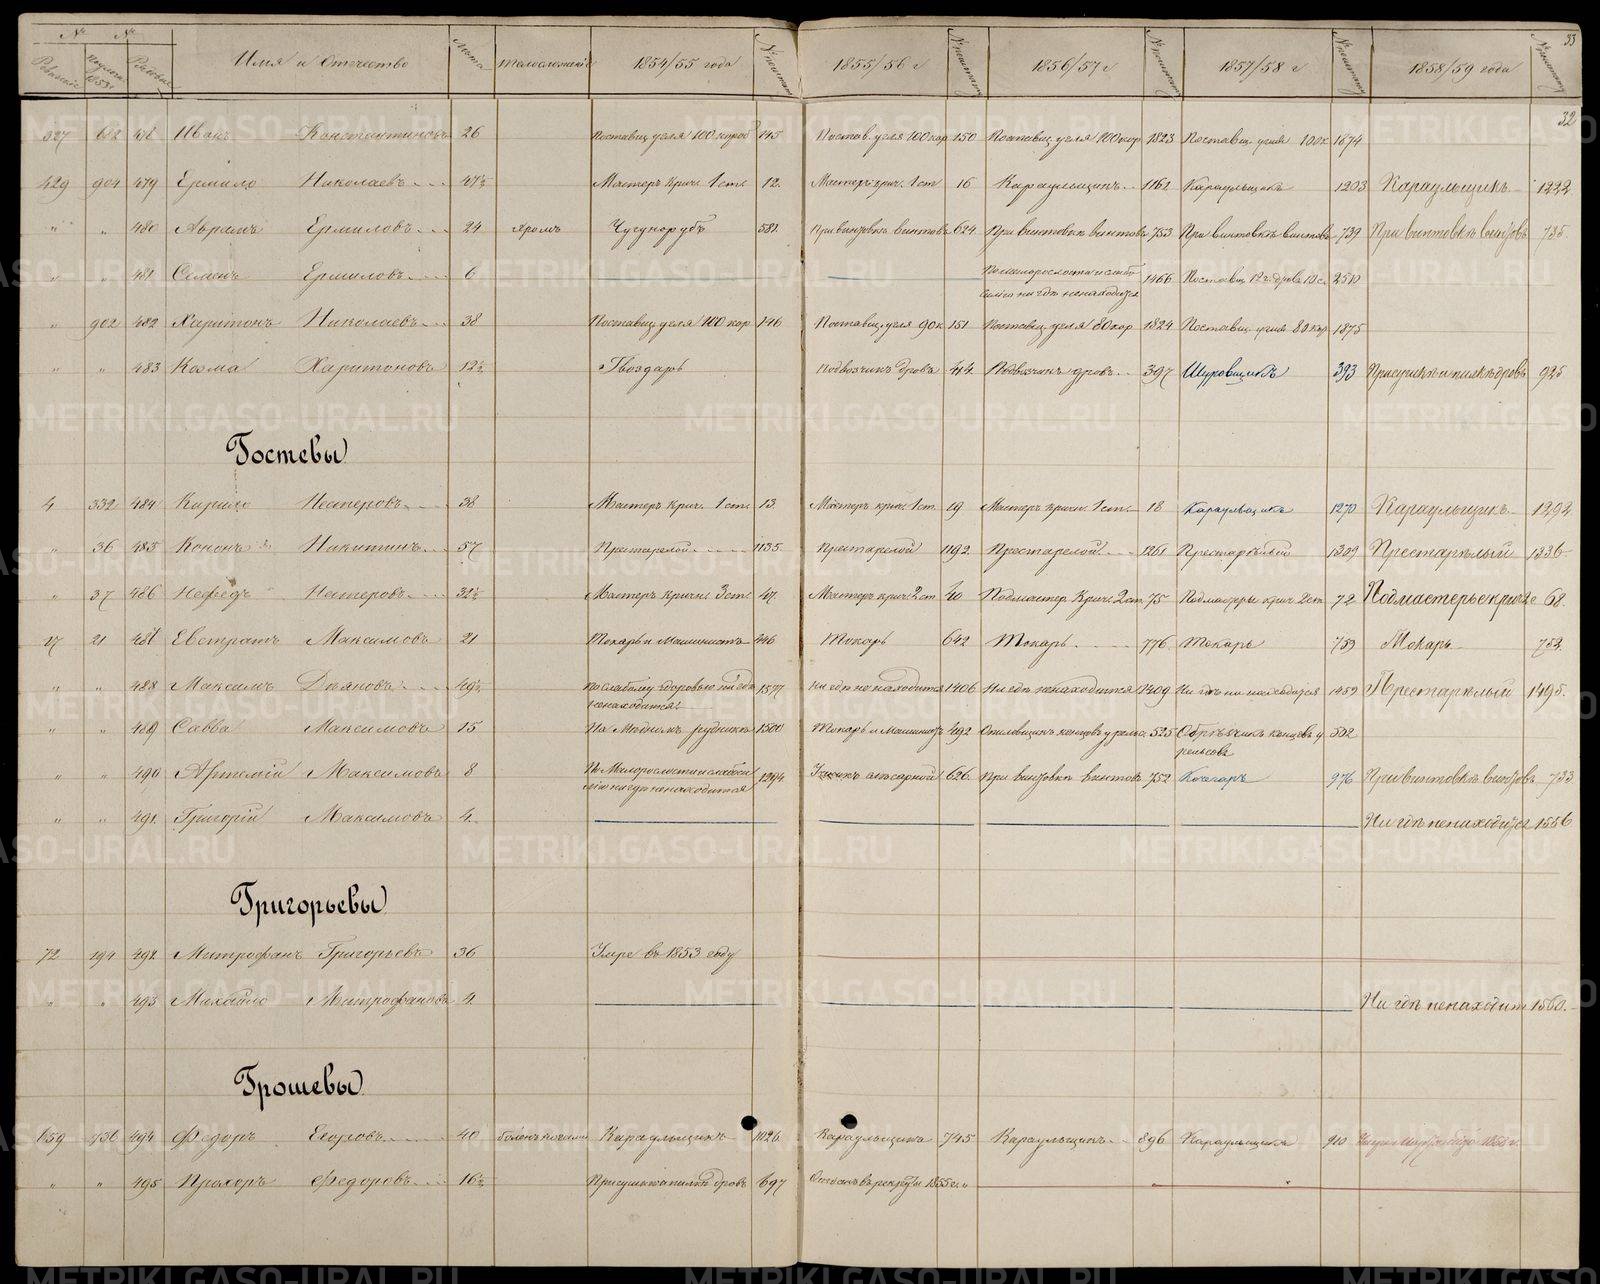 33
№ № Имя и Отечество Лѣта тѣлосложенiе 1854/55 года 1855/56 г 1856/57 г 1857/58 г 1858/59 года
32
327 478 Иванъ Константиновъ 26 Поставщ. угля 100 короб 145 Постав. угля 100 кор 150 Поставщ. угля 100 кор 1823 Поставщ. угля 100 к 1874
429 904 479 Ермило Николаевъ 47½ Мастеръ крич. 1 ст. 12. Мастеръ крич. 1 ст 16 Караульщикъ 1161 Караульщикъ 1203 Караульщикъ 1222
" " 480 Абрамъ Ермиловъ 24 хромъ Чугунорубъ 581. При винтовкѣ винтовъ 624 При винтовкѣ винтовъ 753 При винтовкѣ винтовъ 739 При винтовкѣ винтовъ 735
" " 481 Семенъ Ермиловъ 6 По малорослости и слабо 1466 Поставщ. 12 ч. дровъ 10 с. 2510
силiю ни гдѣ ненаходится
" 902 482 Харитонъ Николаевъ 38 Поставщ. угля 100 кор 146 Поставщ. угля 90 к 151 Поставщ. угля 80 кор 1824 Поставщ. угля 80 кор 1875
" " 483 Козма Харитоновъ 12½ Гвоздарь Подвозчикъ дровъ 44. Подвозчикъ дровъ 397 Шуровщикъ 393 При сушкѣ и пилкѣ дровъ 925
Гостевы
4 332 484 Кирило Нестеровъ 38 Мастеръ Крич. 1 ст. 13. Мастеръ крич. 1 ст. 19 Мастеръ кричн. 1 ст. 18 Караульщикъ 1270 Караульщикъ 1292
" 36 485 Кононъ Никитинъ 57 Престарелой 1135. Престарелой 1192 Престарелой 1261 Престарѣлый 1309 Престарѣлый 1336
" 37 486 Нефедъ Нестеровъ 32½ Мастеръ кричн. 3 ст. 47. Мастеръ крич. 2 ст 40 Подмастер. Крич. 2 ст. 75 Подмастерье крич. 2 ст. 72 Подмастерье крич 2 с 68.
17 21 487 Евстратъ Максимовъ 21 Токарь и Машинистъ 446 Токарь 642 Токарь 776 Токарь 759 Токарь 752.
" " 488 Максимъ Деяновъ 49½ По слабому здоровью ни гдѣ 1577 Ни гдѣ не находится 1406 Ни гдѣ ненаходится 1409 Ни гдѣ ни находится 1459 Престарѣлый 1495.
ненаходится
" " 489 Савва Максимовъ 15 На Мѣдномъ рудникѣ 1500 Токарь и Машинистъ 492 Опиловщикъ концовъ у рельс. 525 Обрѣзчикъ концевъ у 502
рельсовъ
" " 490 Артемiй Максимовъ 8 По Малорослости и слабоси 1294 Ученикъ слесарной 626. При винтовкѣ винтовъ 752 Кочегаръ 976 При винтовкѣ винтовъ 733
лiю ни гдѣ ненаходится
" " 491. Григорiй Максимовъ 4. Ни гдѣ ненаходится 1556
Григорьевы
72 199 492 Митрофанъ Григорьевъ 36 Умре въ 1853 году
" " 493 Михайло Митрофановъ 4 Ни гдѣ ненаходит 1560.
Грошевы
659 736 494 Федоръ Егоровъ 40 боленъ ногами Караульщикъ 1026 Караульщикъ 745 Караульщикъ 896 Караульщикъ 910
" " 495 Прохоръ Федоровъ 16½ При сушкѣ и пилкѣ дровъ 697 Отданъ въ рекруты 1855 г.
METRIKI.GASO-URAL.RU